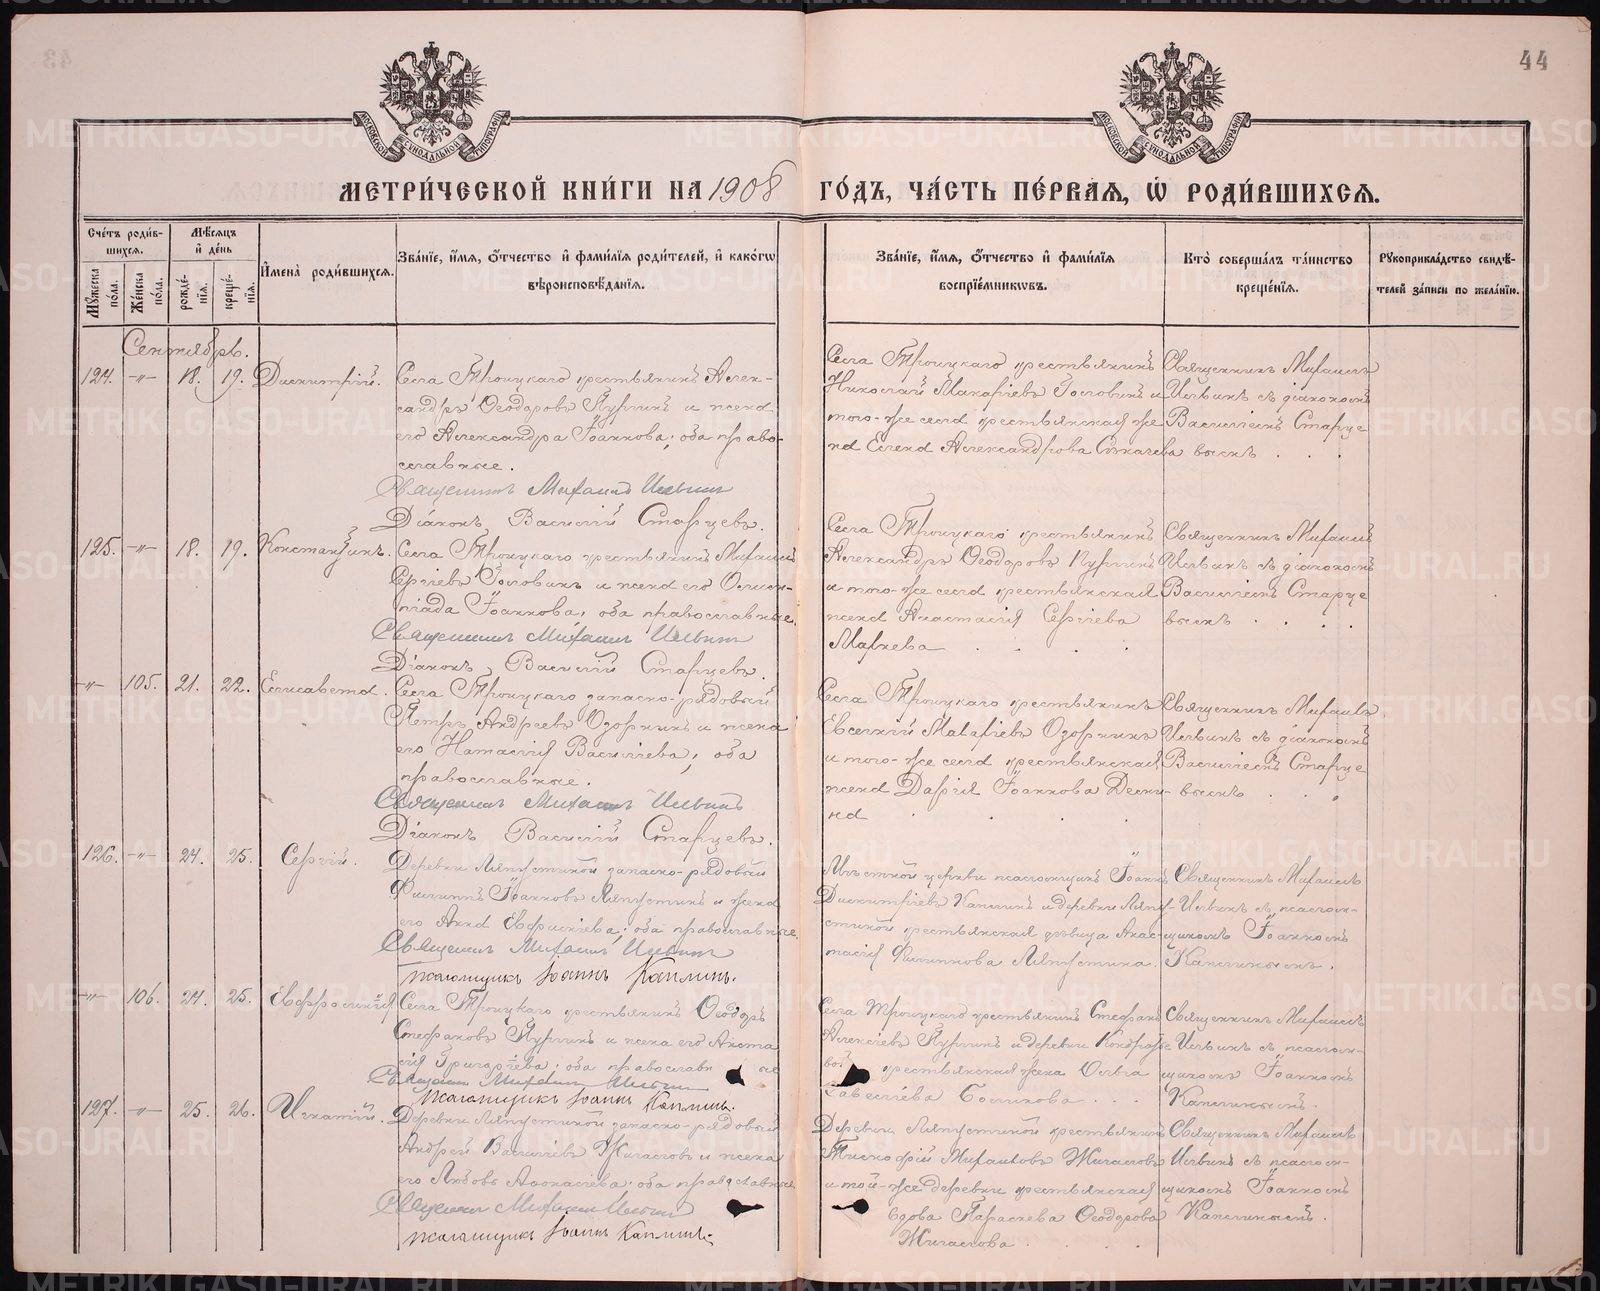 44
МОСКОВСКОЙ СУНОДАЛЬНОЙ ТИПОГРАФІИ
МОСКОВСКОЙ СУНОДАЛЬНОЙ ТИПОГРАФІИ
МЕТРИ́ЧЕСКОЙ КНИ́ГИ НА 1908
ГО́ДЪ, ЧА́СТЬ ПЕ́РВАѦ, Ѡ҆ РОДИ́ВШИХСѦ.
Сче́тъ роди́в-
шихсѧ.
Мѣ́сѧцъ
и҆ де́нь
Мꙋ́жеска по́ла.
Же́нска по́ла.
рожде́-
нїѧ.
креще́-
нїѧ.
И҆мена̀ роди́вшихсѧ.
Зва́нїе, и҆́мѧ, ѻ҆́тчество и҆ фами́лїѧ роди́телей, и҆ како́гѡ
вѣроисповѣ́данїѧ.
Зва́нїе, и҆́мѧ, ѻ҆́тчество и҆ фами́лїѧ
воспрїе́мникѡвъ.
Кто̀ соверша́лъ та́инство
креще́нїѧ.
Рꙋкоприкла́дство свидѣ́-
телей за́писи по жела́нїю.
Сентябрь.
124. -"- 18. 19. Димитрій.
Села Троицкаго крестьянинъ Алек-
сандръ Ѳеодоровъ Пургинъ и жена
его Александра Іоаннова; оба право-
славные.
Священникъ Михаилъ Ильинъ
Діаконъ Василій Старцевъ.
Села Троицкаго крестьянинъ
Николай Макаріевъ Головинъ и
того-же села крестьянская же
на Елена Александрова
Священникъ Михаилъ
Ильинъ съ діакономъ
Василіемъ Старце
вымъ . . .
125. -"- 18. 19. Константинъ.
Села Троицкаго крестьянинъ Михаилъ
Сергіевъ Головинъ и жена его Олим-
піада Іоаннова, оба православные.
Священникъ Михаилъ Ильинъ
Діаконъ Василій Старцевъ.
Села Троицкаго крестьянинъ
Александръ Ѳеодоровъ Пургинъ
и того-же села крестьянская
жена Анастасія Сергіева
Маркева . . . .
Священникъ Михаилъ
Ильинъ съ діакономъ
Василіемъ Старце
вымъ . . . .
-"- 105. 21. 22. Елисавета.
Села Троицкаго запасно-рядовый
Петръ Андреевъ Озорнинъ и жена
его Натаслія Василіева; оба
православные.
Священникъ Михаилъ Ильинъ
Діаконъ Василій Старцевъ.
Села Троицкаго крестьянинъ
Евсегній Матфіевъ Озорнинъ
и того-же села крестьянская
жена Дарія Іоаннова Деми-
на . . . .
Священникъ Михаилъ
Ильинъ съ діакономъ
Василіемъ Старце
вымъ . . .
126. -"- 24. 25. Сергій.
Деревни Ляпустиной запасно-рядовый
Филиппъ Іоанновъ Ляпустинъ и жена
его Анна Евфиміева; оба православные.
Священникъ Михаилъ Ильинъ
псаломщикъ Іоаннъ Каплинъ.
Мѣстной церкви псаломщикъ Іоаннъ
Димитріевъ Каплинъ и деревни Ляпу-
стиной крестьянская дѣвица Анас-
тасія Филиппова Ляпустина.
Священникъ Михаилъ
Ильинъ съ псалом-
щикомъ Іоанномъ
Каплинымъ.
-"- 106. 24. 25. Евфросинія
Села Троицкаго крестьянинъ Ѳеодоръ
Стефановъ Пургинъ и жена его Анаста
сія Григорьева; оба православн
Священникъ Михаилъ Ильинъ
псаломщикъ Іоаннъ Каплинъ.
Села Троицкаго крестьянинъ Стефанъ
Алексіевъ Пургинъ и деревни
вой крестьянская жена Ольга
Савеліева . . .
Священникъ Михаилъ
Ильинъ съ псалом-
щикомъ Іоанномъ
Каплинымъ.
127. -"- 25. 26. Игнатій.
Деревни Ляпустиной запасно-рядовый
Андрей Василіевъ Жигаловъ и жена
его Любовь Аѳонасіева; оба православные.
Священникъ Михаилъ Ильинъ
псаломщикъ Іоаннъ Каплинъ.
Деревни Ляпустиной крестьянинъ
Тимофій Михаиловъ Жигаловъ
и той-же деревни крестьянская
вдова Параскева Ѳеодорова
Жигалова . . .
Священникъ Михаилъ
Ильинъ съ псалом-
щикомъ Іоанномъ
Каплинымъ.
METRIKI.GASO-URAL.RU